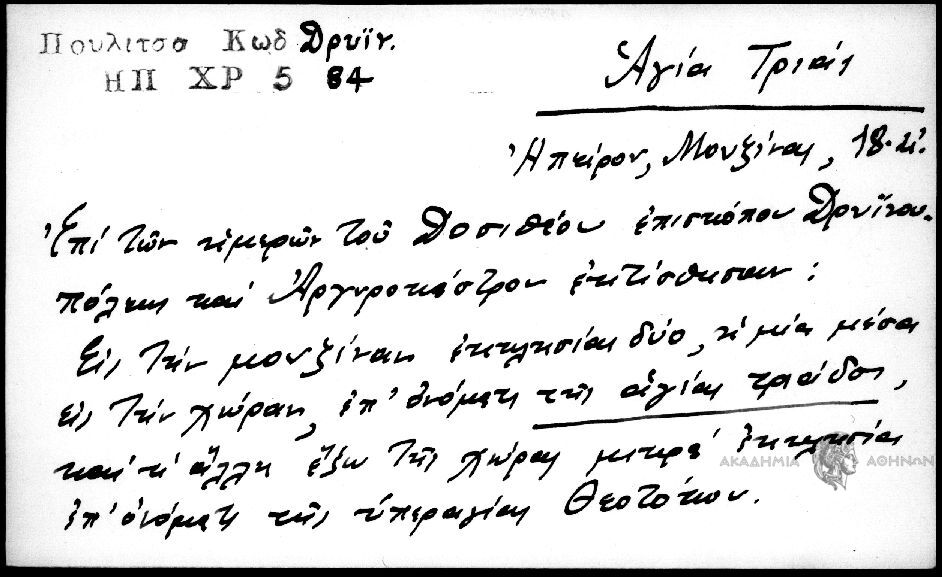 Πουλιτσα Κωδ Δρυϊν.
ΗΠ ΧΡ 5 84
Ἁγία Τριάς
Ἠπείρου, Μουζίνας, 18. αἰ.
Ἐπί τῶν ἡμερῶν τοῦ Δοσιθέου ἐπισκόπου Δρυϊνου-
πόλεως καί Ἀργυροκάστρου ἐκτίσθησαν:
Εἰς τήν μουζίναν ἐκκλησίαι δύο, ἡ μία μέσα
εἰς τήν χώραν, ἐπ' ὀνόματι τῆς ἁγίας τριάδος,
καί ἡ ἄλλη ἔξω τῆς χώρας μικρά ἐκκλησία
ἐπ' ὀνόματι τῆς ὑπεραγίας Θεοτόκου.
ΑΚΑΔΗΜΙΑ ΑΘΗΝΩΝ